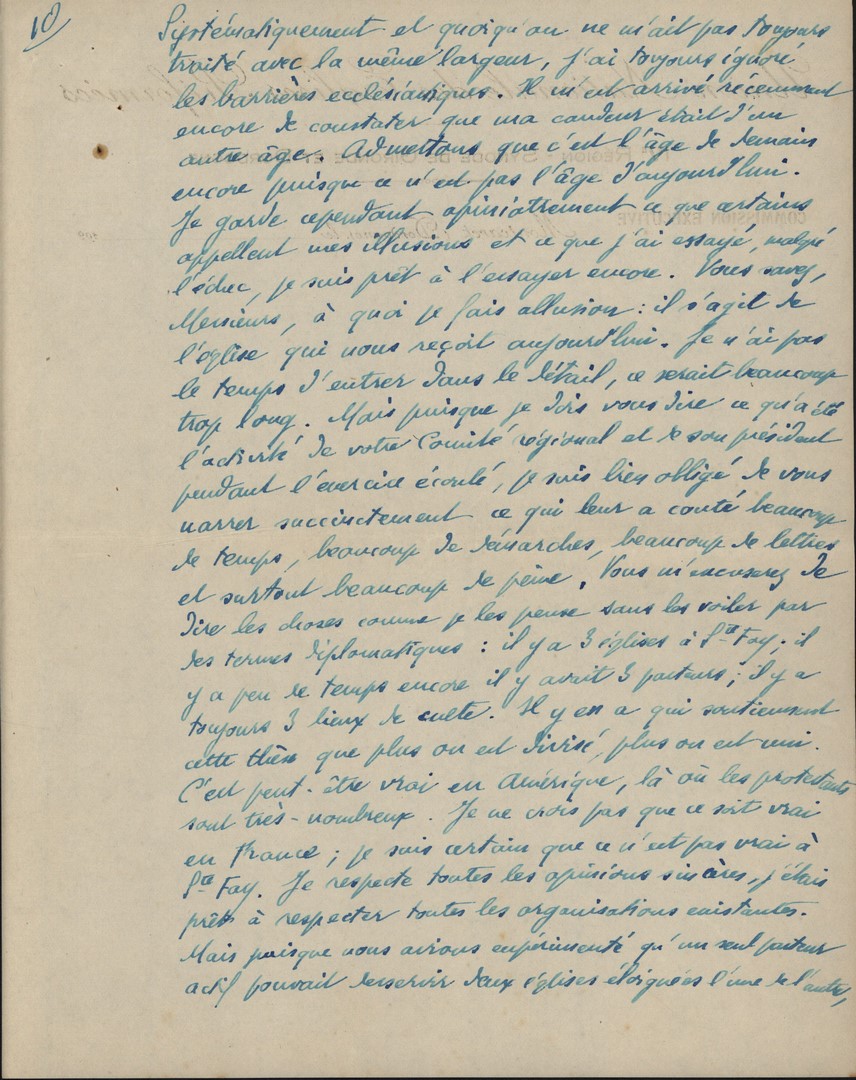 10
Systématiquement et quoiqu'on ne m'ait pas toujours
traité avec la même largeur, j'ai toujours ignoré
les barrières ecclésiastiques. Il m'est arrivé récemment
encore de constater que ma candeur était d'un
autre âge. Admettons que c'est l'âge de demain
encore puisque ce n'est pas l'âge d'aujourd'hui.
Je garde cependant opiniâtrement ce que certains
appellent mes illusions et ce que j'ai essayé, malgré
l'échec, je suis prêt à l'essayer encore. Vous savez,
Messieurs, à quoi je fais allusion : il s'agit de
l'église qui nous reçoit aujourd'hui. Je n'ai pas
le temps d'entrer dans le détail, ce serait beaucoup
trop long. Mais puisque je dois vous dire ce qu'a été
l'activité de votre Comité régional et de son président
pendant l'exercice écoulé, je suis bien obligé de vous
narrer succinctement ce qui leur a coûté beaucoup
de temps, beaucoup de démarches, beaucoup de lettres
et surtout beaucoup de peine. Vous m'excuserez de
dire les choses comme je les pense sans les voiler par
des termes diplomatiques : il y a 3 églises à Ste Foy ; il
y a peu de temps encore il y avait 3 pasteurs ; il y a
toujours 3 lieux de culte. Il y en a qui soutiennent
cette thèse que plus on est divisé, plus on est uni.
C'est peut-être vrai en Amérique, là où les protestants
sont très-nombreux. Je ne crois pas que ce soit vrai
en France ; je suis certain que ce n'est pas vrai à
Ste Foy. Je respecte toutes les opinions sincères, j'étais
prêt à respecter toutes les organisations existantes.
Mais puisque nous avions expérimenté qu'un seul pasteur
actif pouvait desservir deux églises éloignées l'une de l'autre,
COMMISSION EXECUTIVE
RÉGION - SYNODE DE GIRONDE ET